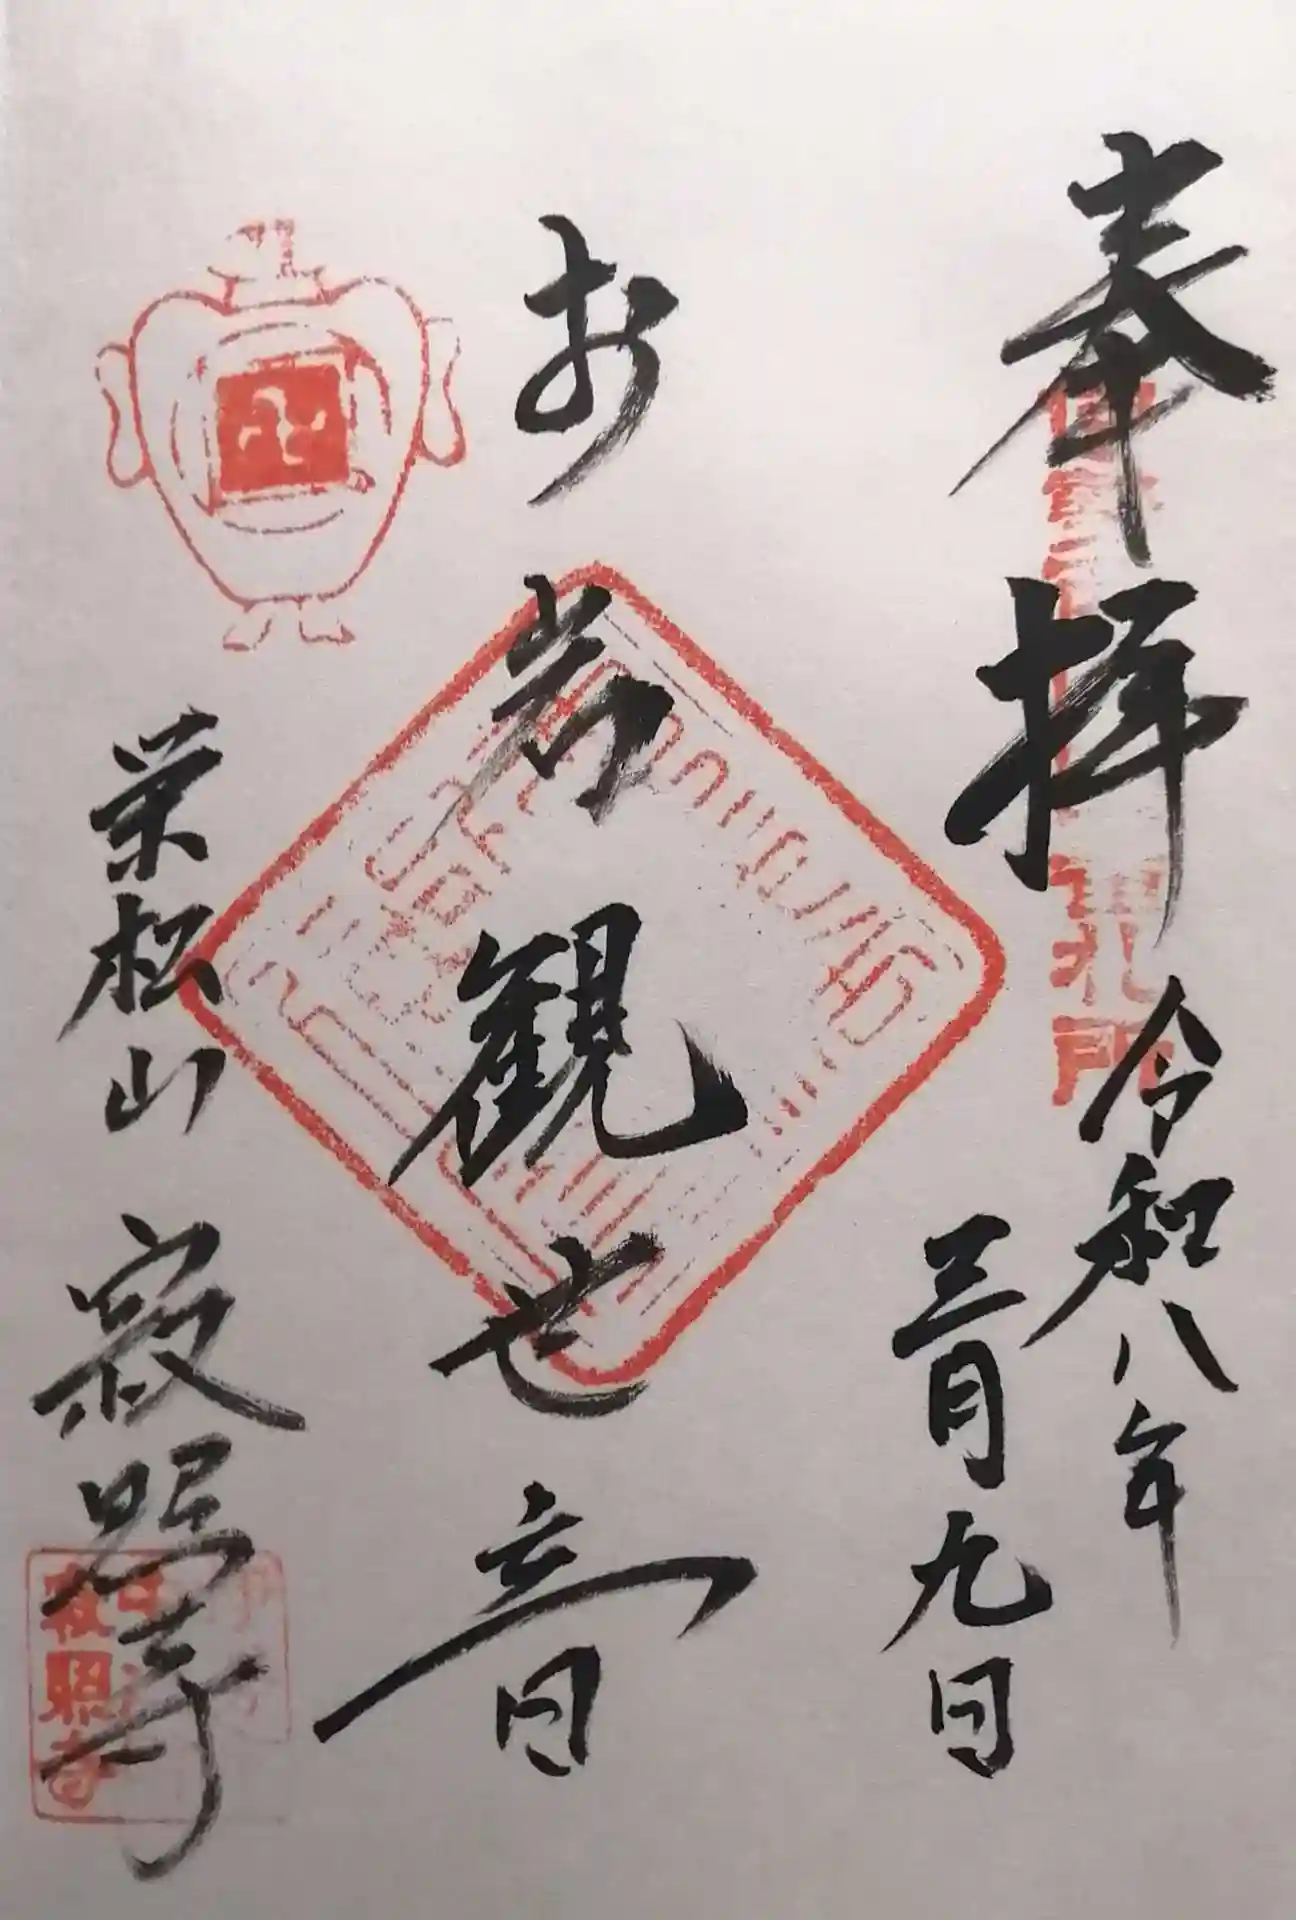 奉拝
令和八年
三月九日
お岩観世音
栄松山 寂照寺
寂照寺